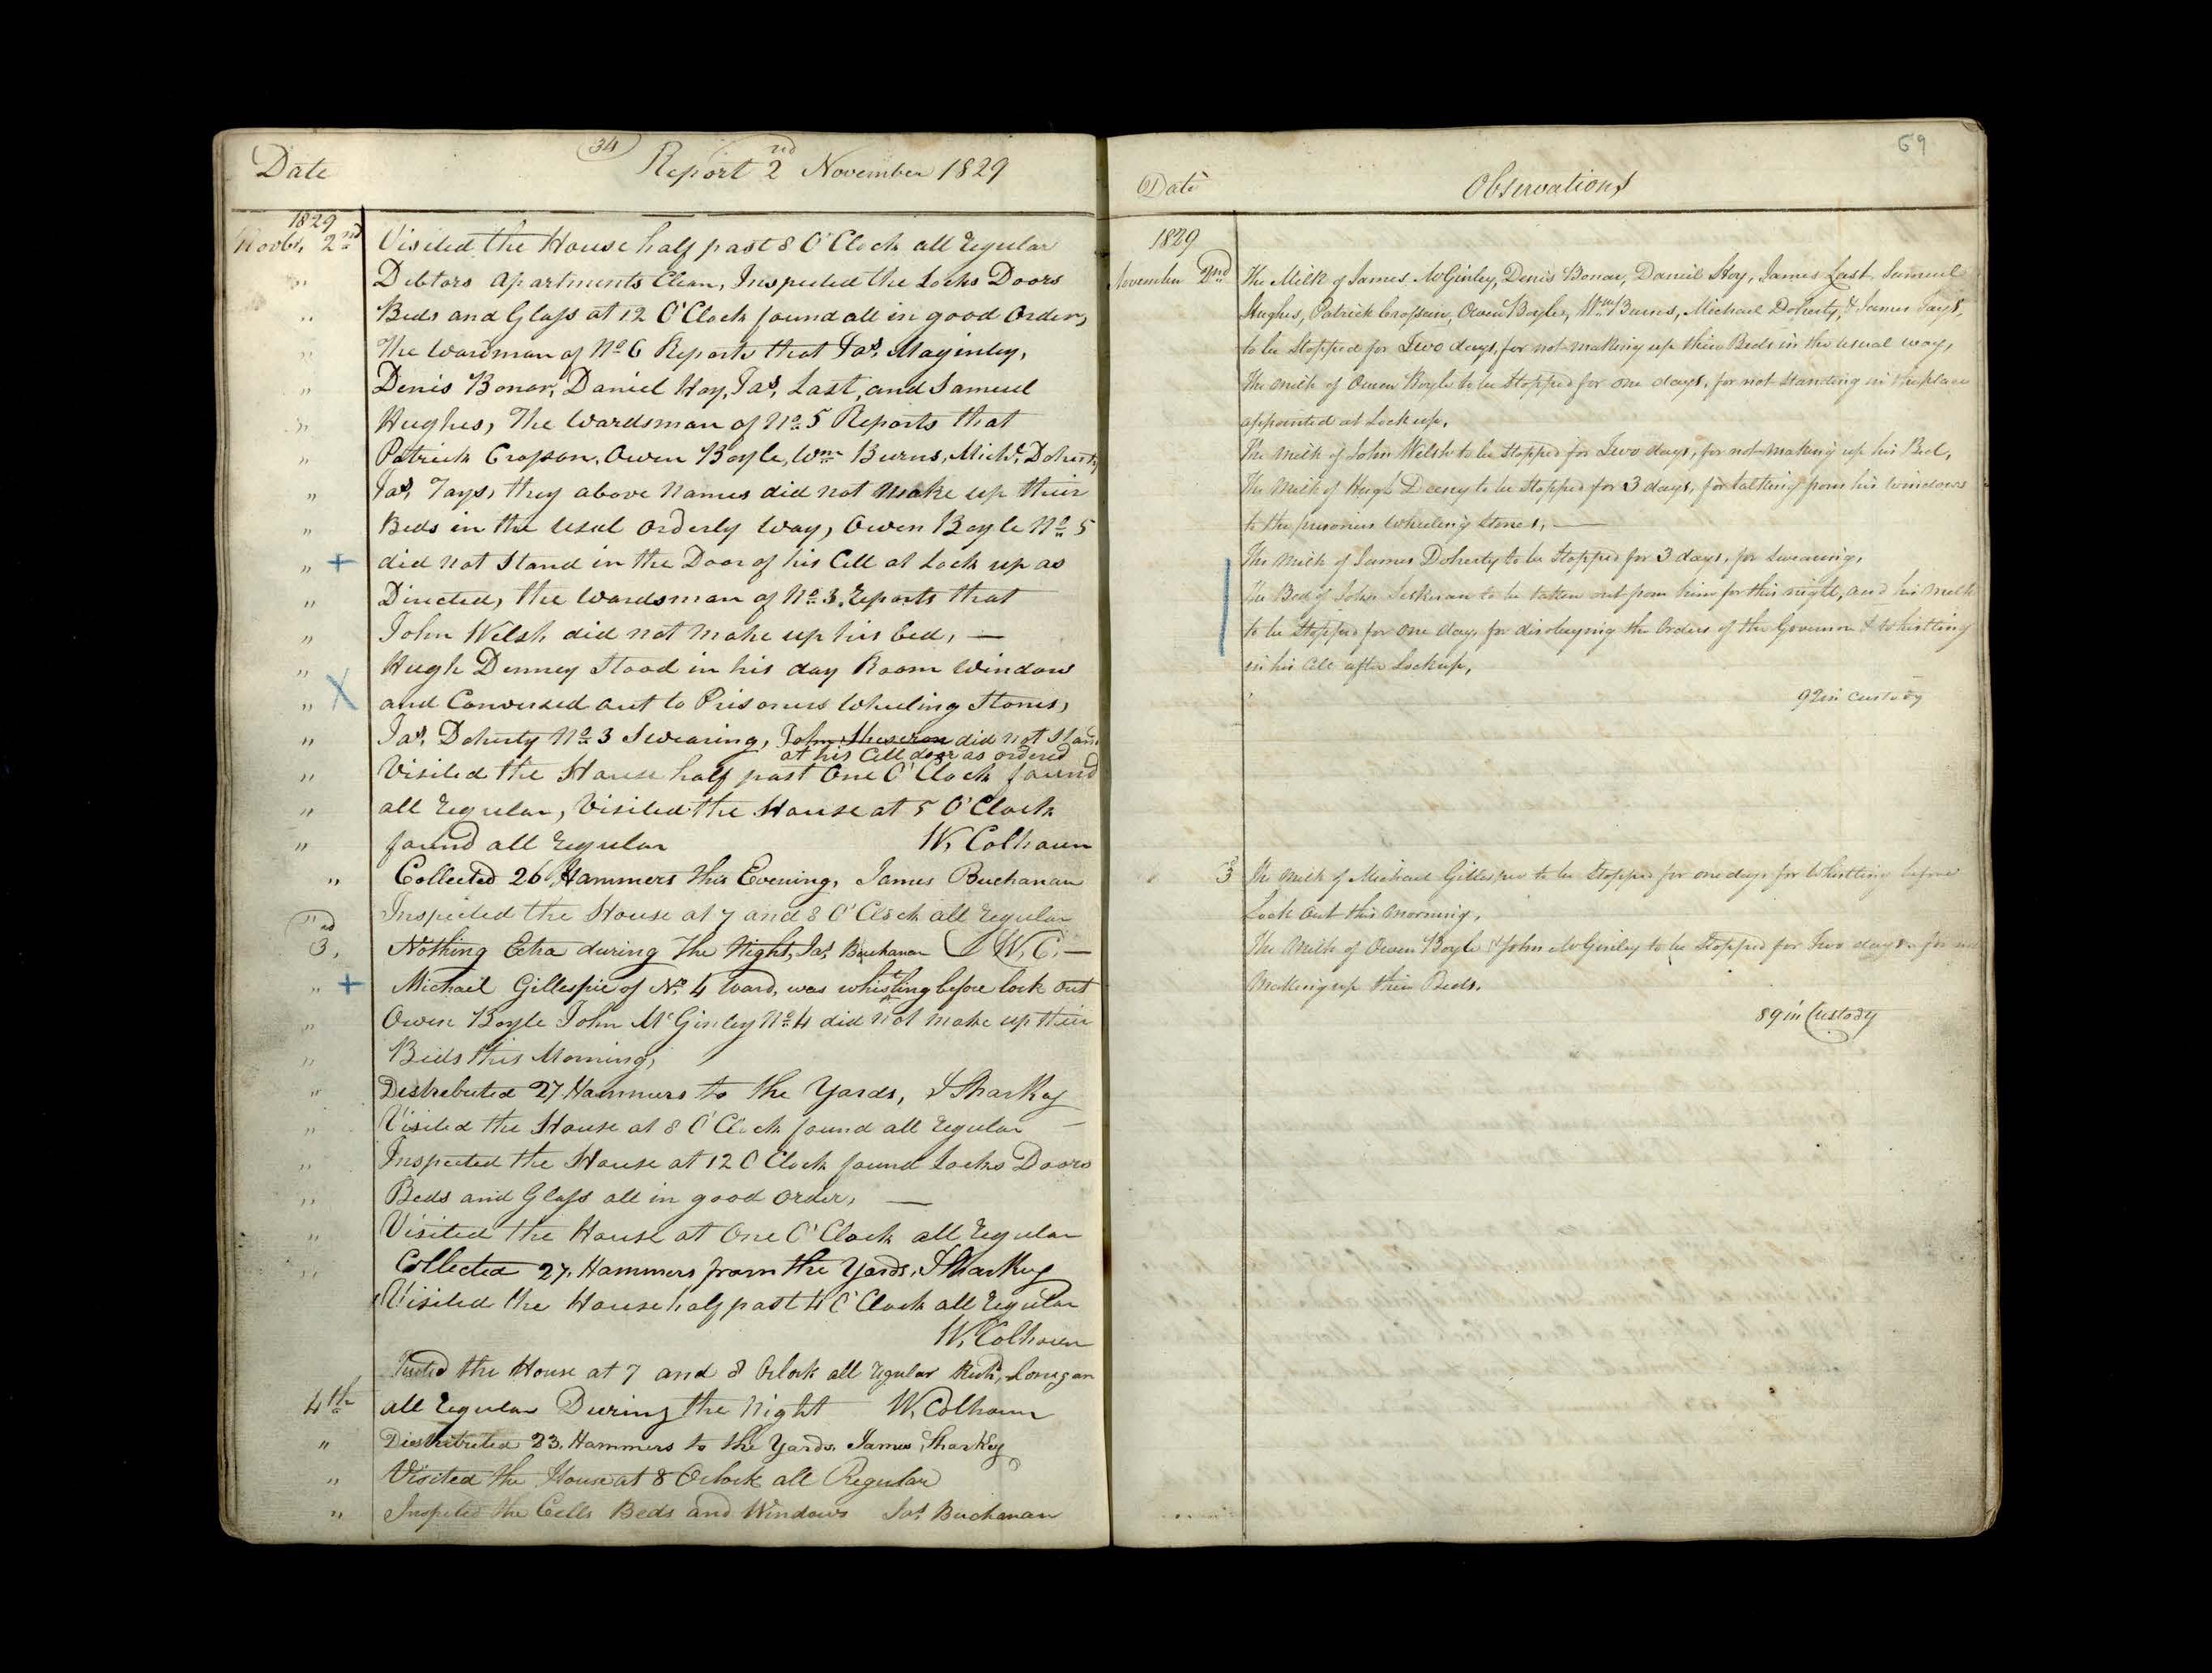 34
Date Report 2nd November 1829
1829
Novbr. 2nd Visited the House half past 8 O'Clock all regular
" Debtors apartments Clean, Inspected the Locks Doors
" Beds and Glass at 12 O'Clock found all in good Order,
" The Wardsman of No 6 Reports that Jas. Maginley,
" Denis Bonar, Daniel Hoy, Jas. Last, and Samuel
" Hughes, The Wardsman of No 5 Reports that
" Patrick Crosson, Owen Boyle, Wm Burns, Michl. Doherty
" Jas. Tays, they above Names did not make up their
" Beds in the Usul orderly way, Owen Boyle No 5
" + did not Stand in the Door of his Cell at Lock up as
" Directed, the Wardsman of No 3. Reports that
" John Welsh did not make up his bed, —
" Hugh Denney Stood in his day Room Window
" X and Conversed out to Prisoners Wheeling Stones,
" Jas. Doherty No 3 Swearing, John did not Stand
at his Cell door as ordered
" Visited the House half past One O'Clock found
" all regular, Visited the House at 5 O'Clock
" found all regular W. Colhoun
" Collected 26 Hammers this Evening, James Buchanan
" Inspected the House at 7 and 8 O'Clock all regular
3rd. Nothing Extra during the Night, Jas. Buchanan W. C. —
" + Michael Gillespie of No. 4 Ward, was whistling before lock out
" Owen Boyle John McGinley No 4 did not make up their
" Beds this Morning,
" Distrebuted 27 Hammers to the Yards, J Sharkey
" Visited the House at 8 O'Clock found all regular —
" Inspected the House at 12 O Clock found Locks Doors
" Beds and Glass all in good order, —
" Visited the House at One O'Clock all regular
" Collected 27. Hammers from the Yards, J Sharkey
Visited the House half past 4 O'Clock all regular
W. Colhoun
Visited the House at 7 and 8 Oclock all regular Richd. Lonigan
4th all regular During the Night W. Colhoun
" Distributed 23. Hammers to the Yards. James Sharkey
" Visited the House at 8 Oclock all Regular
" Inspected the Cells Beds and Windows Jas Buchanan
69
Date Observations
1829
November 2nd The Milk of James McGinley, Denis Bonar, Daniel Hoy, James Last, Samuel
Hughes, Patrick Crossan, Owen Boyle, Wm Burns, Michael Doherty, & James Tays,
to be Stopped for Two days, for not making up their Beds in the usual way,
The milk of Owen Boyle to be Stopped for one days, for not standing in the place
appointed at Lock up,
The Milk of John Welsh to be Stopped for Two days, for not making up his Bed,
The Milk of Hugh Deeny to be Stopped for 3 days, for talking from his window
to the prisoners wheeling Stones, —
The Milk of James Doherty to be Stopped for 3 days, for Swearing,
The Bed of John to be taken out from him for this night, and his milk
to be Stopped for one day, for disobeying the Orders of the Governor & Whistling
in his Cell after Lockup,
92 in custody
3 The Milk of Michael Gillespie to be Stopped for one day for Whistling before
Lock Out this morning,
The Milk of Owen Boyle & John McGinley to be Stopped for Two days for not
Making up their Beds.
89 in Custody